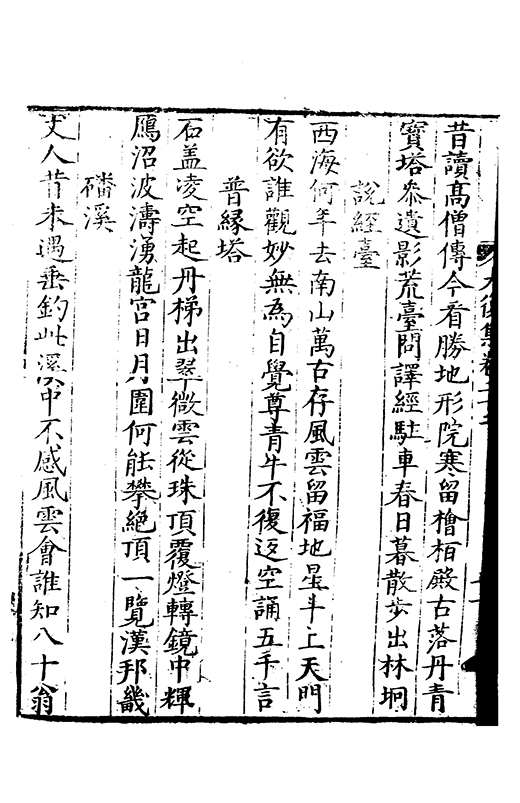 昔讀髙僧傳今看勝地形院寒留檜栢殿古落丹青
寳塔叅遺影荒臺問譯經駐車春日暮散步出林坰
說經臺
西海何年去南山萬古存風雲留福地星斗上天門
有欲誰觀妙無爲自覺尊青牛不復返空誦五千言
普縁塔
石盖凌空起丹梯出翠微雲從珠頂覆燈轉鏡中輝
鴈沼波濤湧龍宮日月圍何能攀絶頂一覽漢邦畿
磻溪
丈人昔未遇垂釣此溪中不感風雲會誰知八十翁